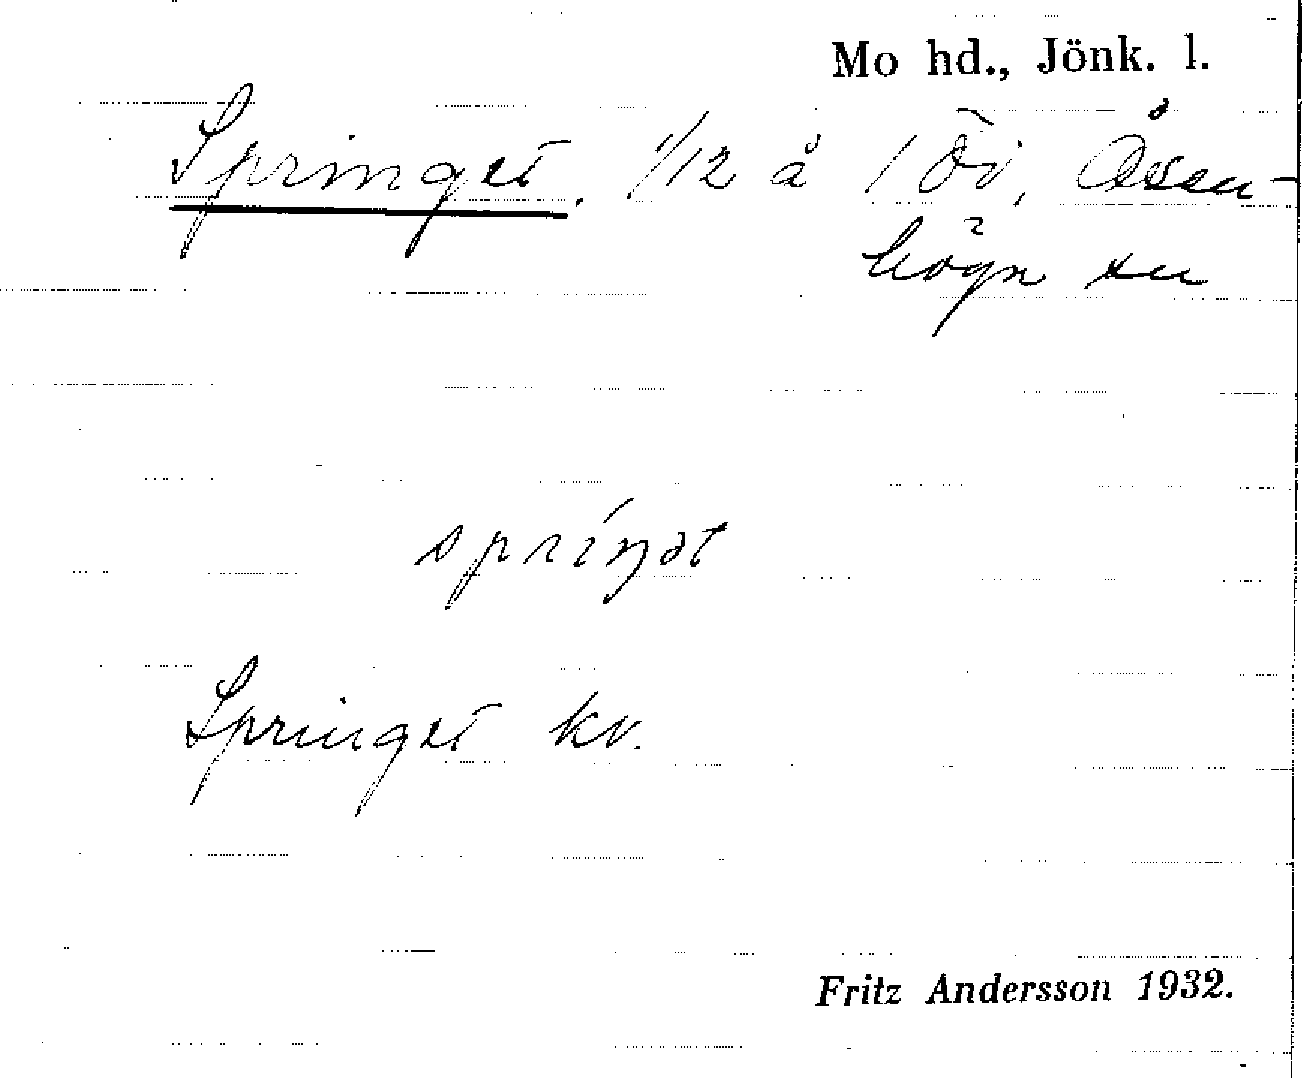 Mo hd., Jönk. l.
Springet. 1/12 å 1 Öv, Åsen-
högn sn
spríŋət
Springet kv.
Fritz Andersson 1932.